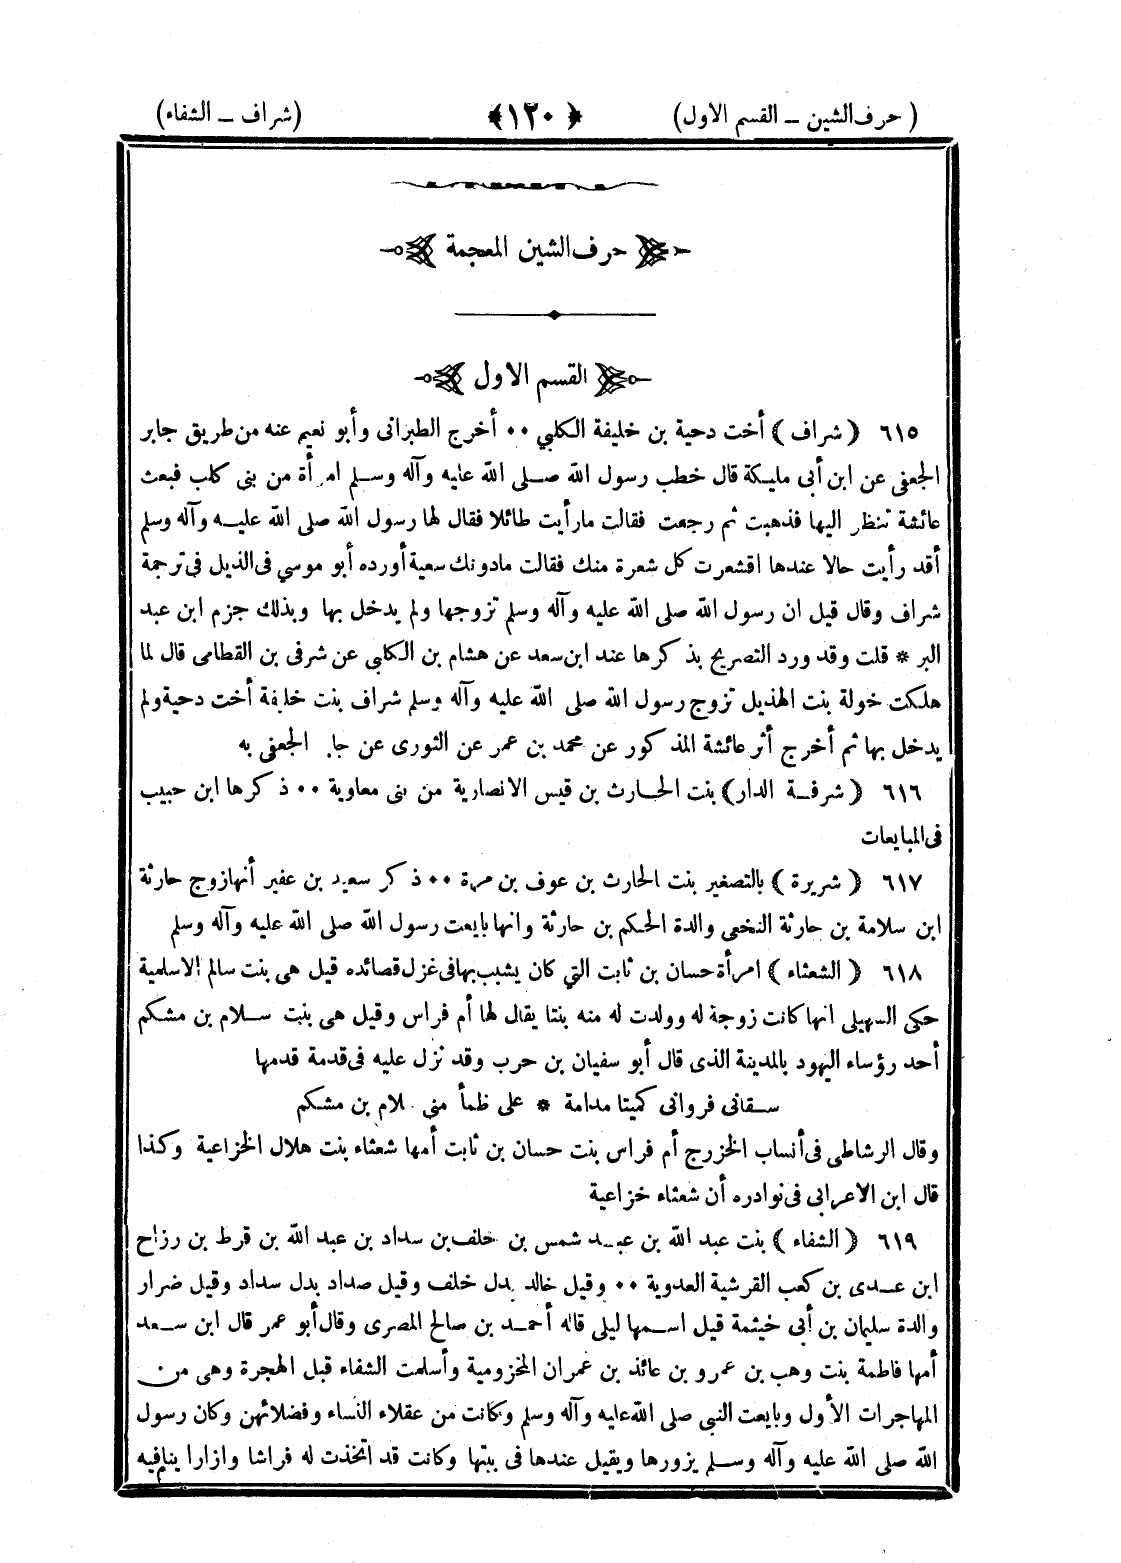 (حرف الشين ــ القسم الاول) ﴿١٢٠﴾ (شراف ــ الشفاء)
حرف الشين المعجمة
القسم الاول
٦١٥ (شراف) أخت دحية بن خليفة الكلبي ٠٠ أخرج الطبرانى وأبو نعيم عنه من طريق جابر
الجعفى عن ابن أبى مليكة قال خطب رسول الله صلى الله عليه وآله وسلم امرأة من بنى كلب فبعث
عائشة تنظر اليها فذهبت ثم رجعت فقالت مارأيت طائلا فقال لها رسول الله صلى الله عليه وآله وسلم
أقد رأيت حالا عندها اقشعرت كل شعرة منك فقالت مادونك سعية أورده أبو موسي فى الذيل فى ترجمة
شراف وقال قيل ان رسول الله صلى الله عليه وآله وسلم تزوجها ولم يدخل بها وبذلك جزم ابن عبد
البر * قلت وقد ورد التصريح بذكرها عند ابن سعد عن هشام بن الكلبي عن شرقى بن القطامى قال لما
هلكت خولة بنت الهذيل تزوج رسول الله صلى الله عليه وآله وسلم شراف بنت خليفة أخت دحية ولم
يدخل بها ثم أخرج أثر عائشة المذكور عن محمد بن عمر عن الثورى عن جا الجعفى به
٦١٦ (شرفة الدار) بنت الحارث بن قيس الانصارية من بنى معاوية ٠٠ ذكرها ابن حبيب
فى المبايعات
٦١٧ (شريرة) بالتصغير بنت الحارث بن عوف بن مرة ٠٠ ذكر سعيد بن عفير أنها زوج حارثة
ابن سلامة بن حارثة النخعى والدة الحكم بن حارثة وانها بايعت رسول الله صلى الله عليه وآله وسلم
٦١٨ (الشعثاء) امرأة حسان بن ثابت التي كان يشبب بها فى غزل قصائده قيل هى بنت سالم الاسلمية
حكى السهيلى انها كانت زوجة له وولدت له منه بنتا يقال لها أم فراس وقيل هى بنت سلام بن مشكم
أحد رؤساء اليهود بالمدينة الذى قال أبو سفيان بن حرب وقد نزل عليه فى قدمة قدمها
سقانى فروانى كميتا مدامة * على ظمأ منى لام بن مشكم
وقال الرشاطى فى أنساب الخزرج أم فراس بنت حسان بن ثابت أمها شعثاء بنت هلال الخزاعية وكذا
قال ابن الاعرابى فى نوادره أن شعثاء خزاعية
٦١٩ (الشفاء) بنت عبد الله بن عبد شمس بن خلف بن سداد بن عبد الله بن قرط بن رزاح
ابن عدى بن كعب القرشية العدوية ٠٠ وقيل خالد بدل خلف وقيل صداد بدل سداد وقيل ضرار
والدة سليمان بن أبى خيثمة قيل اسمها ليلى قاله أحمد بن صالح المصرى وقال أبو عمر قال ابن سعد
أمها فاطمة بنت وهب بن عمرو بن عائذ بن عمران المخزومية وأسلمت الشفاء قبل الهجرة وهى من
المهاجرات الأول وبايعت النبى صلى الله عليه وآله وسلم وكانت من عقلاء النساء وفضلائهن وكان رسول
الله صلى الله عليه وآله وسلم يزورها ويقيل عندها فى بيتها وكانت قد اتخذت له فراشا وازارا ينام فيه